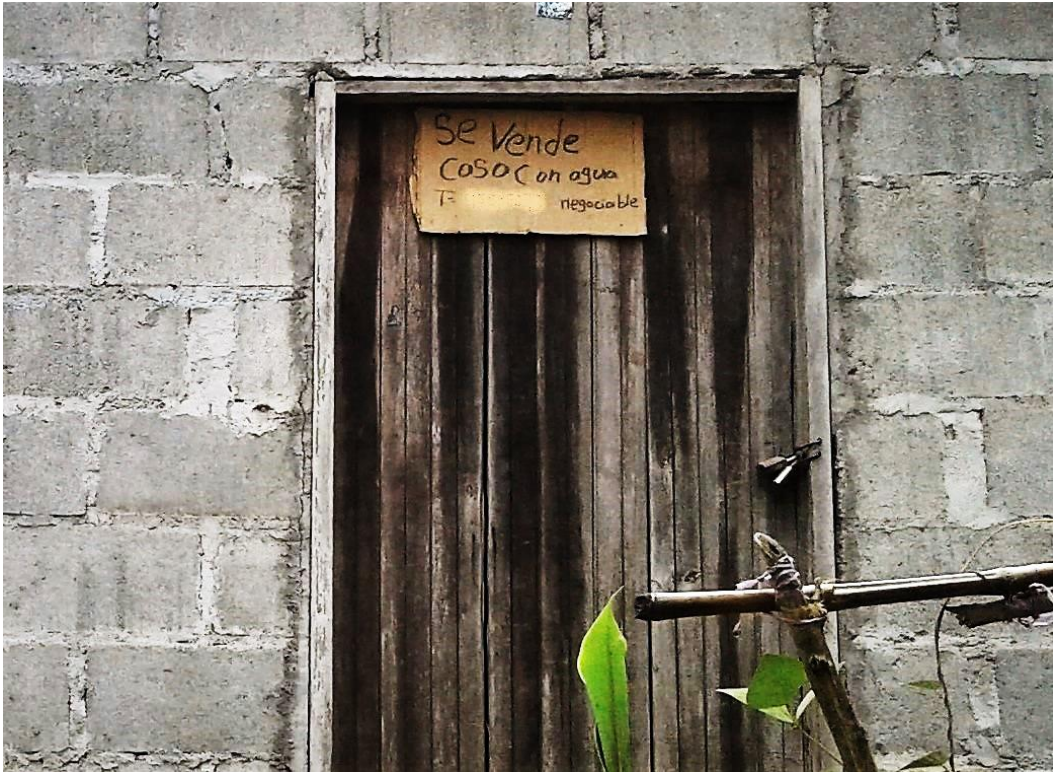 Se Vende
Casa Con agua
T= negociable